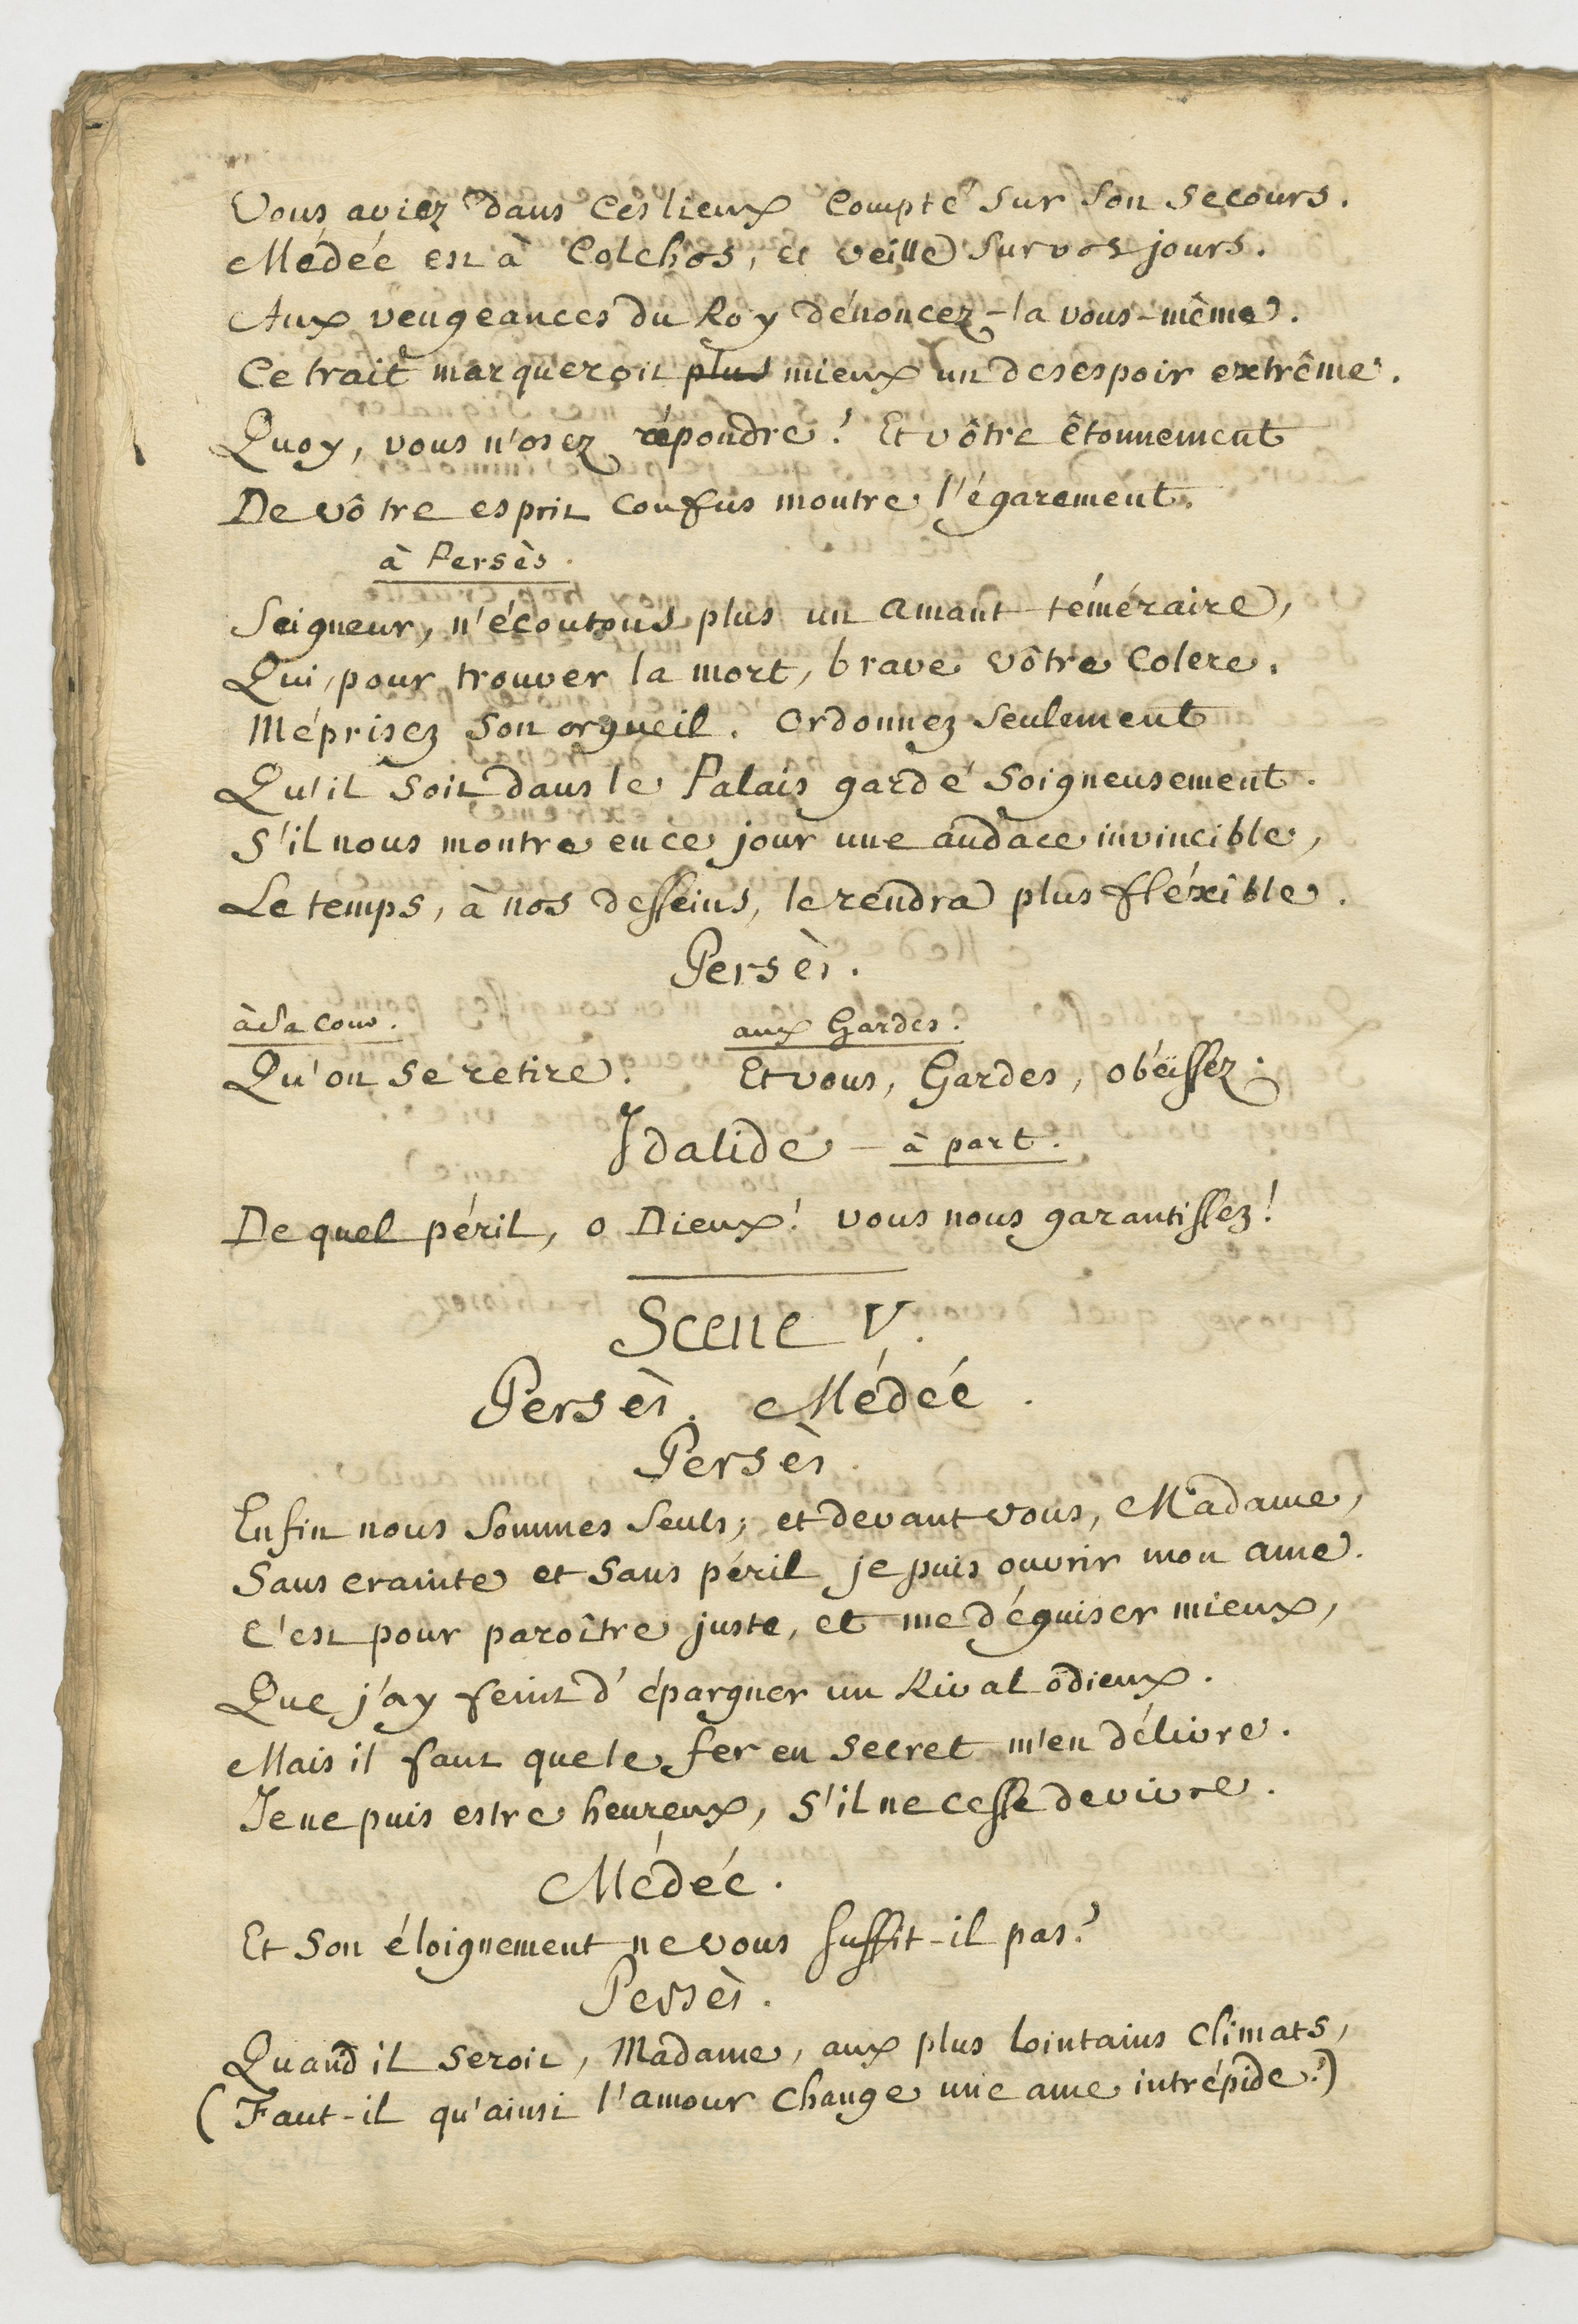 Vous aviez dans ces lieux compté sur son secours.
Médée est à Colchos, et veille sur vos jours.
Aux vengeances du Roy dénoncez-la vous-même.
Ce trait marqueroit plus mieux un desespoir extrême.
Quoy, vous n'osez répondre! Et vôtre êtonnement
De vôtre esprit confus montre l'égarement.
à Persès.
Seigneur, n'écoutons plus un amant téméraire,
Qui, pour trouver la mort, brave vôtre colere.
Méprisez son orgueil. Ordonnez seulement
Qu'il soit dans le Palais gardé soigneusement.
S'il nous montre en ce jour une audace invincible,
Le temps, à nos desseins, le rendra plus fléxible.
Persès.
à sa cour. aux Gardes.
Qu'on se retire. Et vous, Gardes, obéissez.
Idalide - à part.
De quel péril, o Dieux! vous nous garantissez!
Scene V.
Persès. Médée.
Persès.
Enfin nous sommes seuls; et devant vous, Madame,
Sans crainte et sans péril je puis ouvrir mon ame.
C'est pour paroître juste, et me déguiser mieux,
Que j'ay feint d'épargner un Rival odieux.
Mais il faut que le fer en secret m'en délivre.
Je ne puis estre heureux, s'il ne cesse de vivre.
Médée.
Et son éloignement ne vous suffit-il pas?
Persès.
Quand il seroit, Madame, aux plus lointains climats,
(Faut-il qu'ainsi l'amour change une ame intrépide?)